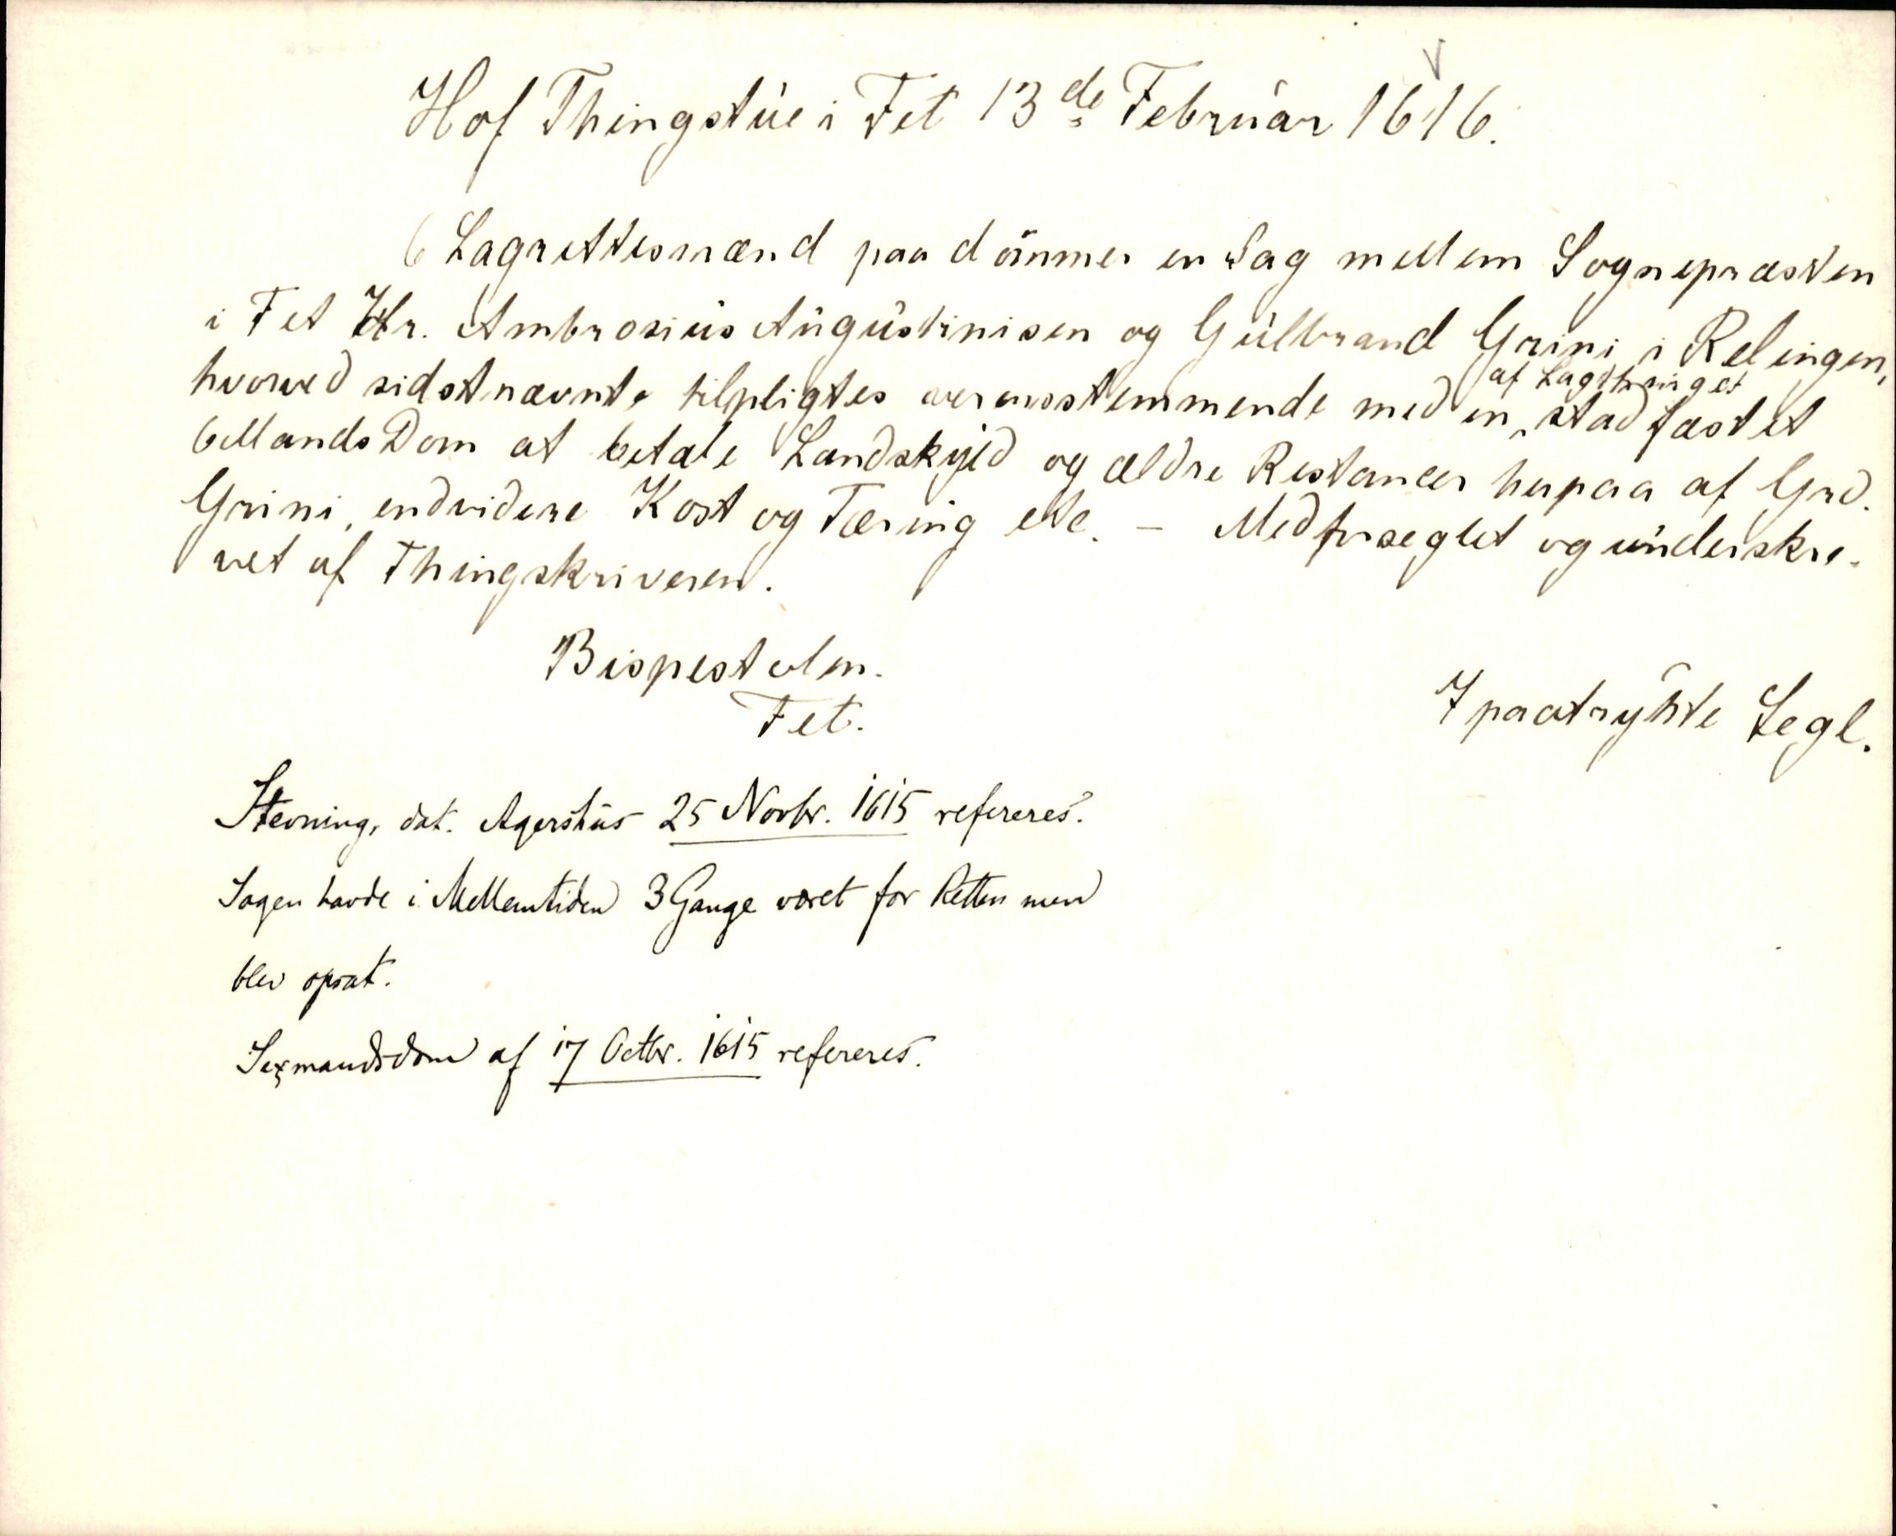 Hof Thingstue i Fet 13de Februar 1616.
6 Lagrettesmænd paadömmer en Sag mellem Sognepræsten
i Fet Hr. Ambrosius Augustinisen og Gulbrand Grini i Relingen,
hvorved sidstnævnte tilpligtes overensstemmende med en af Lagthinget stadfæstet
6 Mands Dom at betale Landskyld og ældre Restancer herpaa af Grd.
Grini, endvidere Kost og Tæring etc. – Medforseglet og underskre-
vet af Thingskriveren.
Bispestolen.
Fet.
7 paatrykte Segl.
Stevning, dat. Agershus 25 Novbr. 1615 refereres.
Sagen havde i Mellemtiden 3 Gange været for Retten men
blev opsat.
Sexmandsdom af 17 Octbr. 1615 refereres.